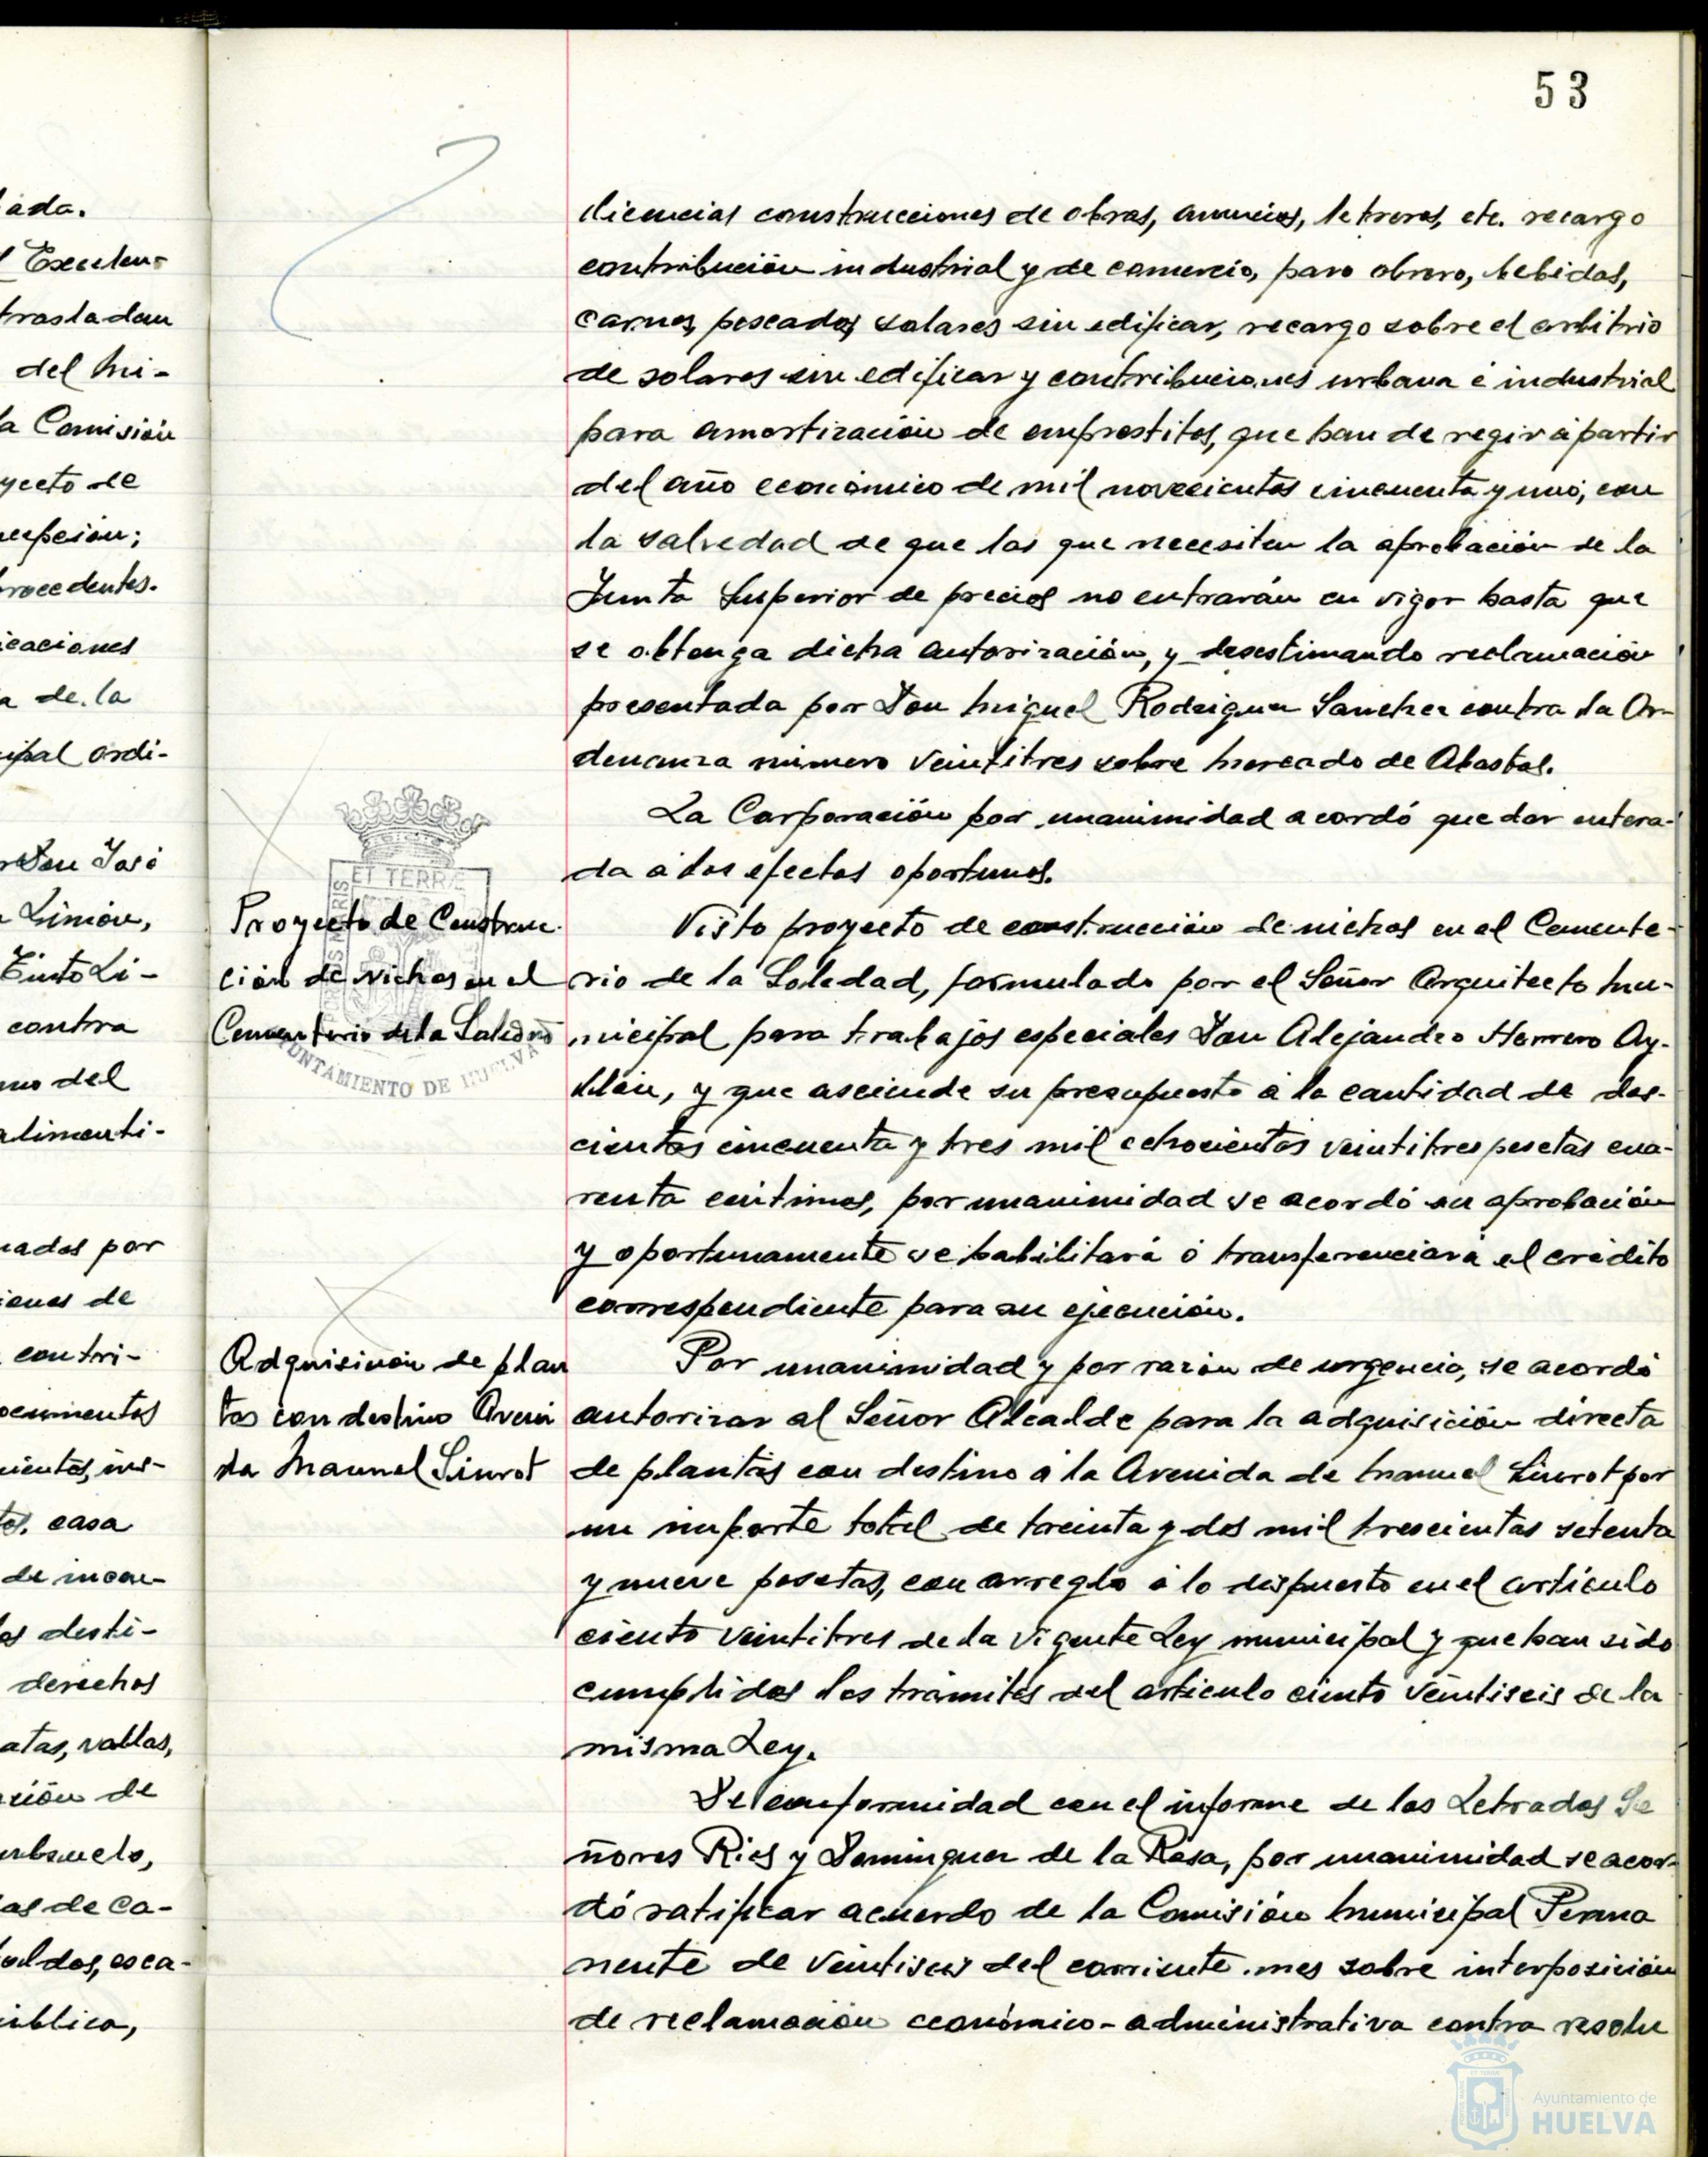 53
ada.
Excelen-
trasladan
del Mi-
a Comisión
yecto de
cepción;
rocedentes.
icaciones
a de la
ipal ordi-
Don José
Limón,
Tinto Li-
contra
mo del
alimenti-
nados por
iones de
contri-
ocumentos
mientos, ins-
casa
de incen-
os desti-
derechos
atas, vallas,
ción de
ubsuelo,
as de ca-
oldos, esca-
ública,
licencias construcciones de obras, anuncios, letreros, etc. recargo
contribución industrial y de comercio, paro obrero, bebidas,
carnes, pescados, solares sin edificar, recargo sobre el arbitrio
de solares sin edificar y contribuciones urbana é industrial
para amortización de emprestitos, que han de regir á partir
del año económico de mil novecientos cincuenta y uno, con
la salvedad de que las que necesiten la aprobación de la
Junta Superior de precios no entrarán en vigor hasta que
se obtenga dicha autorización, y desestimando reclamación
presentada por Don Miguel Rodriguez Sanchez contra la Or-
denanza número veintitres sobre Mercado de Abastos.
La Corporación por unanimidad acordó quedar entera-
da á los efectos oportunos.
ET TERRÆ
MARIS
AYUNTAMIENTO DE HUELVA
Proyecto de Construc-
ción de nichos en el
Cementerio de la Soledad
Visto proyecto de construcción de nichos en el Cemente-
rio de la Soledad, formulado por el Señor Arquitecto Mu-
nicipal para trabajos especiales Don Alejandro Herrero Ay-
llón, y que asciende su presupuesto á la cantidad de dos-
cientas cincuenta y tres mil ochocientas veintitres pesetas cua-
renta centimos, por unanimidad se acordó su aprobación
y oportunamente se habilitará ó transferenciará el crédito
correspondiente para su ejecución.
Adquisición de plan
tas con destino Aveni
da Manuel Siurot
Por unanimidad y por razón de urgencia, se acordó
autorizar al Señor Alcalde para la adquisición directa
de plantas con destino á la Avenida de Manuel Siurot por
un importe total de treinta y dos mil trescientas setenta
y nueve pesetas, con arreglo á lo dispuesto en el artículo
ciento veintitres de la vigente Ley municipal y que han sido
cumplidos los trámites del artículo ciento veintiseis de la
misma Ley.
De conformidad con el informe de los Letrados Se
ñores Rios y Dominguez de la Rosa, por unanimidad se acor-
dó ratificar acuerdo de la Comisión Municipal Perma
nente de veintiseis del corriente mes sobre interposición
de reclamación económico-administrativa contra resolu
Ayuntamiento de
HUELVA